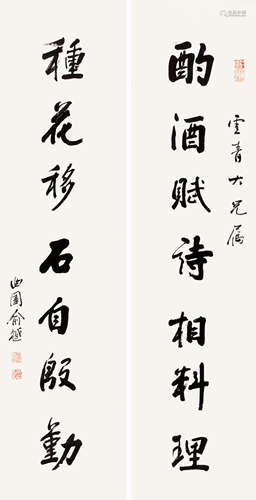 酌酒賦詩相料理
雲青大兄屬
種花移石自殷勤
曲園俞樾